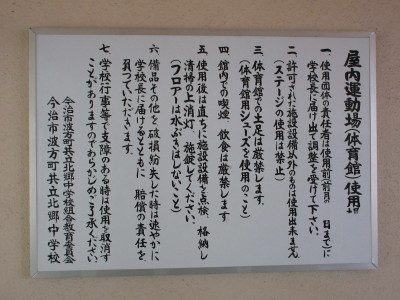 屋内運動場(体育館)使用
一、使用団体の責任者は使用前(前月 日まで)に
学校長に届け出て調整を受けて下さい。
二、許可された施設設備以外のものは使用出来ません
(ステージの使用は禁止)
三、体育館での土足は厳禁します。
(体育館用シューズを使用のこと)
四、館内での喫煙、飲食は厳禁します
五、使用後は直ちに施設設備を点検、格納し
清掃の上消灯、施錠してください。
(フロアーは水ぶきはしないこと)
六、備品その他を破損紛失した時は速やかに
学校長に届けるとともに賠償の責任を
負っていただきます。
七、学校行事等で支障のある時は使用を取消す
ことがありますのであらかじめご了承ください。
今治市波方町共立北郷中学校組合教育委員会
今治市波方町共立北郷中学校